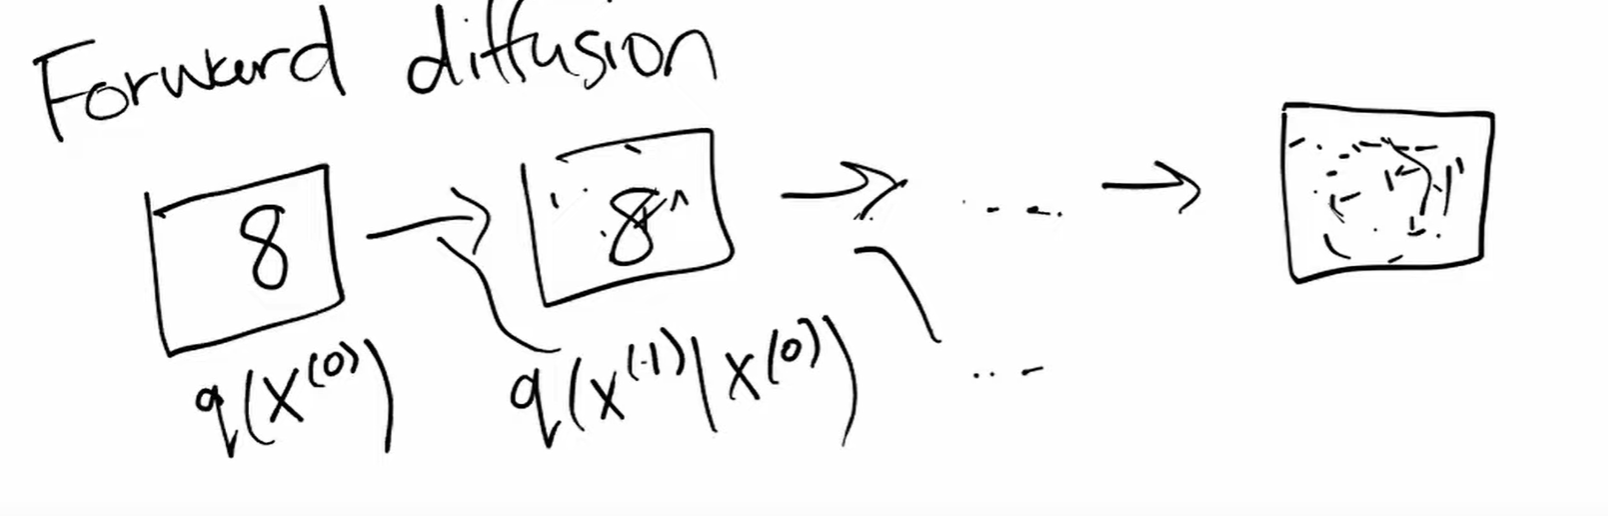 Forward diffusion
8 8
....
q(x^(0)) q(x^(1)|x^(0)) ...